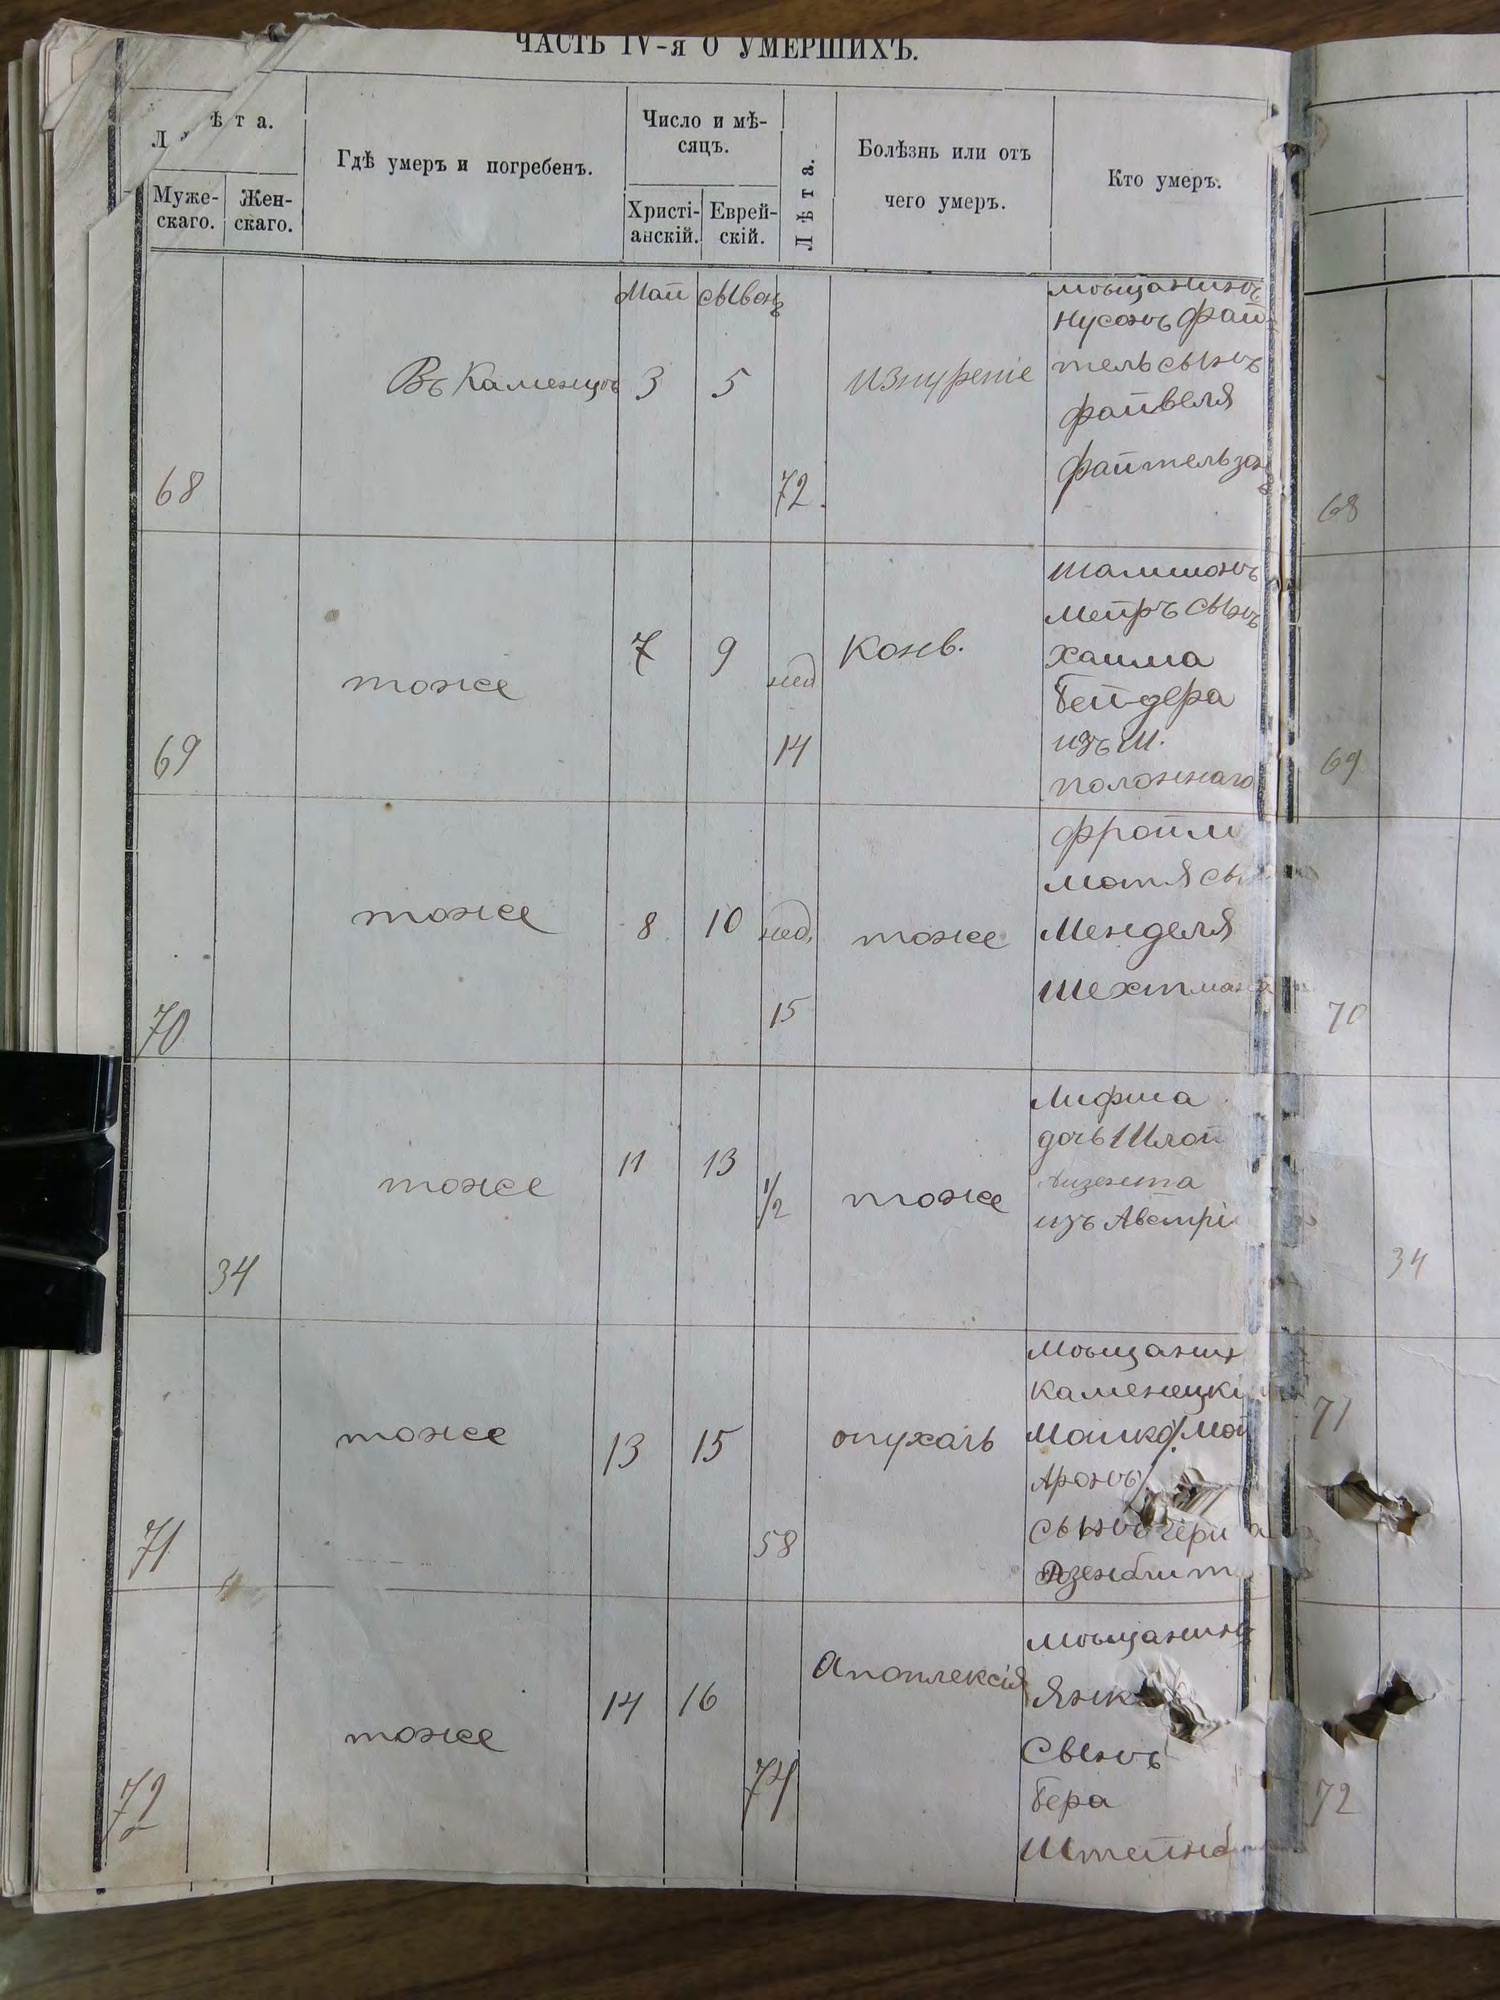 ЧАСТЬ IV-я О УМЕРШИХЪ.
Лѣта.
Муже-
скаго.
Жен-
скаго.
Гдѣ умеръ и погребенъ.
Число и мѣ-
сяцъ.
Христі-
анскій.
Еврей-
скій.
Лѣта.
Болѣзнь или отъ
чего умеръ.
Кто умеръ.
68
Въ Каменцѣ
Май
3
5
72
изнуреніе
мѣщанинъ
Нусонъ Фай-
тель сынъ
Файвеля
Файтельзон
68
69
тоже
7
9
нед
14
Конв.
Шамшонъ
Мейръ сынъ
Хаима
Бейдера
изъ м.
Полоннаго
69
70
тоже
8
10
нед.
15
тоже
Фроим
Мотя сы
Менделя
Шехтмана
70
34
тоже
11
13
1/2
тоже
Лифша
дочь Шлой
изъ Австрі
34
71
тоже
13
15
58
опухаль
Мѣщанин
Каменецкі
Мошко/Мой
Аронъ/
сынъ
71
72
тоже
14
16
74
Апоплексія
мѣщанинъ
Янк
Сынъ
Бера
Штейн
72